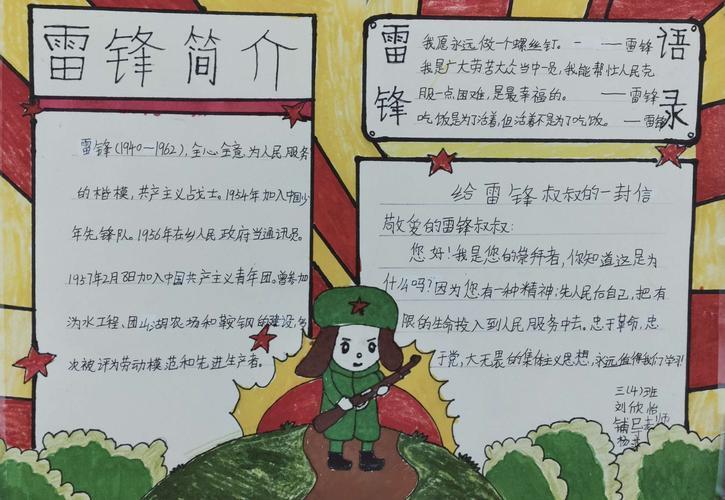 雷锋简介
雷锋(1940~1962),全心全意为人民服务
的楷模,共产主义战士。1954年加入中国少
年先锋队。1956年在乡人民政府当通讯员。
1957年2月8日加入中国共产主义青年团。曾参加
沩水工程、团山湖农场和鞍钢的建设,多
次被评为劳动模范和先进生产者。
雷锋语录
我愿永远做一个螺丝钉。——雷锋
我是广大劳苦大众当中一员,我能帮忙人民克
服一点困难,是最幸福的。——雷锋
吃饭是为了活着,但活着不是为了吃饭。——雷锋
给雷锋叔叔的一封信
敬爱的雷锋叔叔:
您好!我是您的崇拜者,你知道这是为
什么吗?因为您有一种精神:先人民后自己,把有
限的生命投入到人民服务中去。忠于革命,忠
于党,大无畏的集体主义思想,永远值得我们学习!
三(4)班
刘欣怡
辅导老师